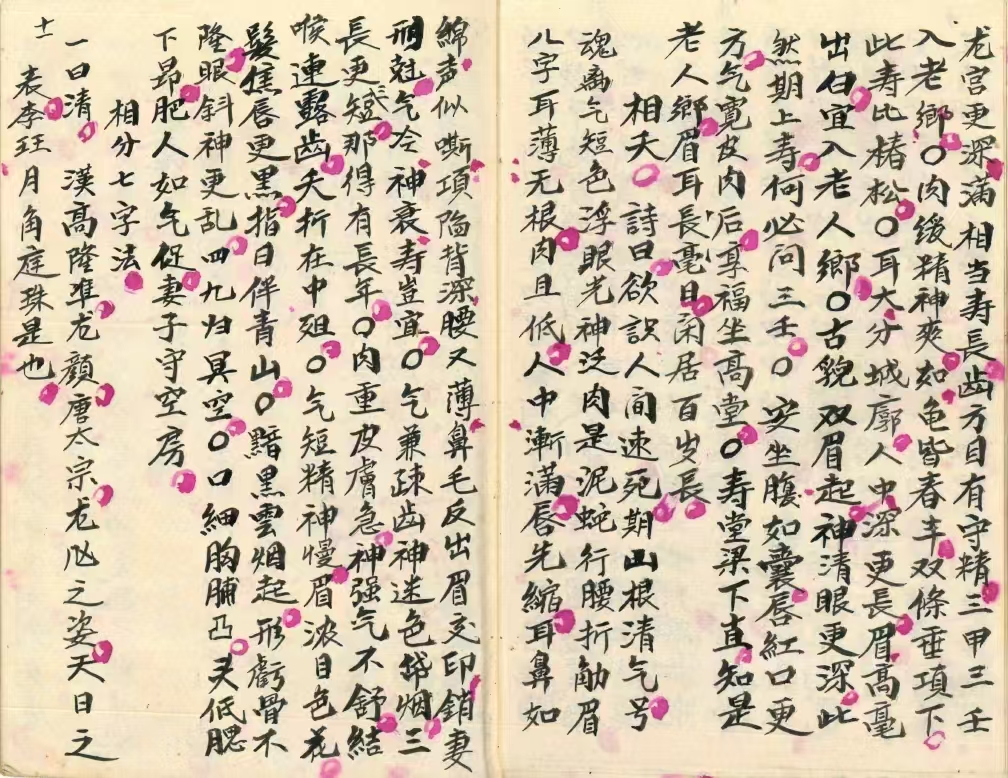 龙宫更深满相当寿長歯方目有守精三甲三壬
入老鄉〇肉缓精神爽如龟皆春丰双條垂項下
此寿比椿松〇耳大分城廓人中深更長眉高毫
出白宜入老人鄉〇古貌双眉起神清眼更深此
然期上寿何必问三壬〇安坐腹如囊唇紅口更
方气寬皮肉后享福坐高堂〇寿堂梁下直知是
老人鄉眉耳長毫日闲居百岁長
相夭〇詩曰欲識人間速死期山根清气号
魂离气短色浮眼光神泛肉是泥蛇行腰折觔眉
八字耳薄无根肉且低人中漸满唇先縮耳鼻如
綿声似嘶項陷背深腰又薄鼻毛反出眉交印銷妻
刑尅气冷神衰寿豈宜〇气兼疎齒神迷色帒烟三
長更短那得有長年〇肉重皮膚急神强气不舒結
喉連露齒夭折在中姐〇气短精神慢眉浓目色花
髮焦唇更黑指日伴青山〇黯黑雲烟起形虧骨不
隆眼斜神更乱四九归冥空〇口細胸脯凸灵低腮
下昂肥人如气促妻子守空房
相分七字法
一曰清漢高隆準龙顔唐太宗龙凤之姿天日之
表李珏月角庭珠是也
十一